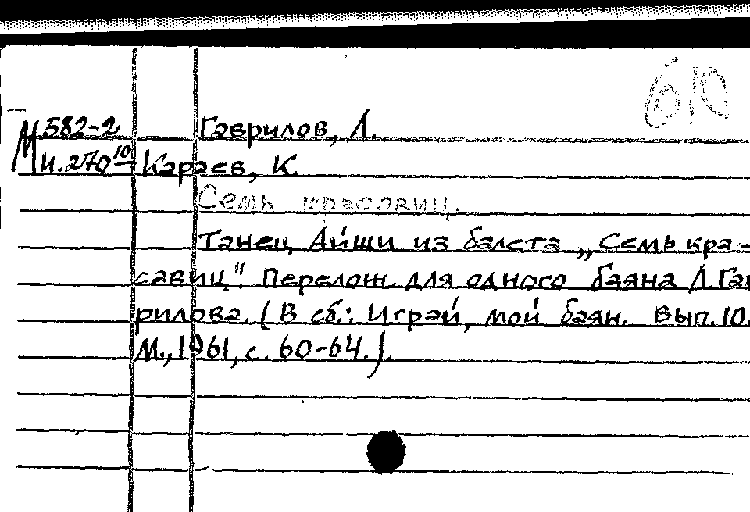 610
М 582-2 Гаврилов, Л.
И.270 10 Караев, К.
Семь красавиц.
Танец Айши из балета „Семь кра-
савиц" Перелож. для одного баяна Л. Гав
рилова. (В сб.: Играй, мой баян. Вып. 10.
М., 1961, с. 60-64.).